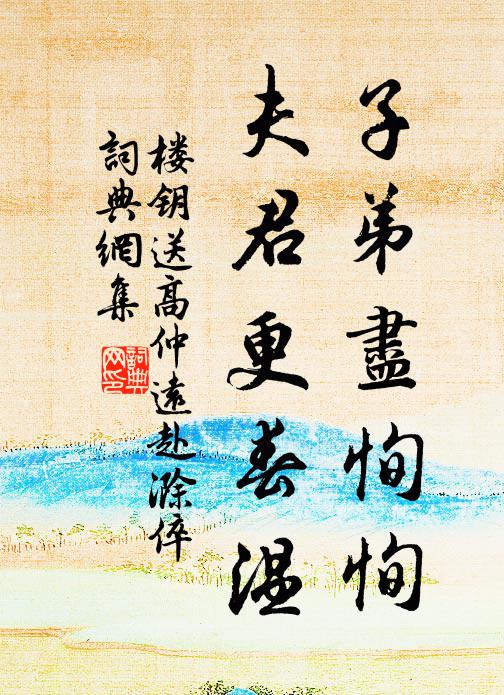 子弟盡恂恂
夫君更春溫
楼钥送高仲遠赴滁倅
詞典網集
詞典网印